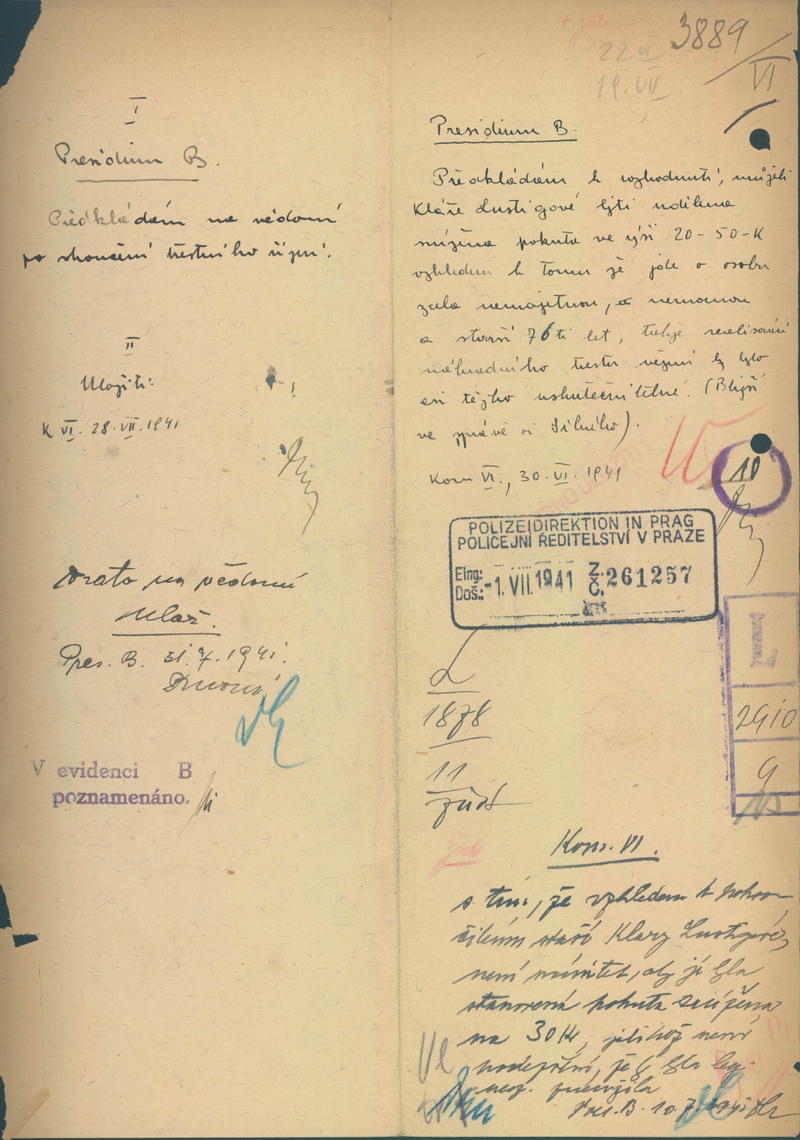 I
Presidium B.
Předkládám na vědomí
po skončení trestního řízení.
II
Uložiti:
K VI. 28. VII. 1941
Vzato na vědomí
Ulož.
Pres. B. 31. 7. 1941.
V evidenci B
poznamenáno.
3889
VI
22. VI
19. VII
Presidium B.
Předkládám k rozhodnutí, může-li
Kláře Lustigové býti udělena
snížena pokuta ve výši 20 - 50 - K
vzhledem k tomu že jde o osobu
zcela nemajetnou, nemocnou
a starší 76 ti let, takže realisování
náhradního trestu vězení by bylo
asi těžko uskutečnitelné. (Bližší
ve zprávě
Kom VI., 30. VI. 1941
10
POLIZEIDIREKTION IN PRAG
POLICEJNÍ ŘEDITELSTVÍ V PRAZE
Eing.: Z.
Doš.: -1. VII. 1941 Č. 261257
L
1878
11
žid
2910
9
Kom. VI.
s tím, že vzhledem k pokro-
čilému stáří Klary Lustigové,
není námitek, aby jí byla
stanovená pokuta snížena
na 30 K, jelikož není
podezření, že by byla leg.
Pres. B. 10. 7. 1941